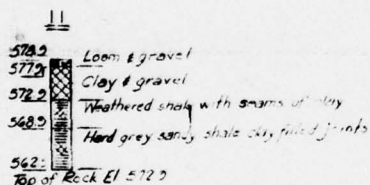 11
578.9
Loam & gravel
577.9
Clay & gravel
572.9
Weathered shale with seams of clay
568.9
Hard grey sandy shale clay filled joints
Top of Rock El 572.9